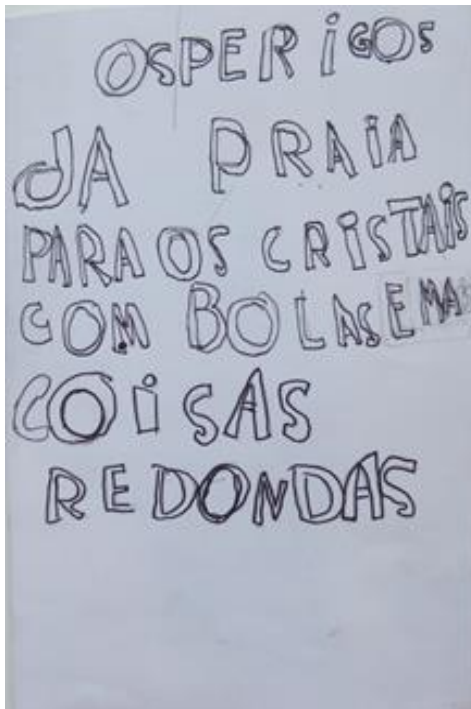 OSPERiGOS
dA PRAiA
PARA OS CRiSTAiS
COM BOLAS E MA
COiSAS
REDONDAS